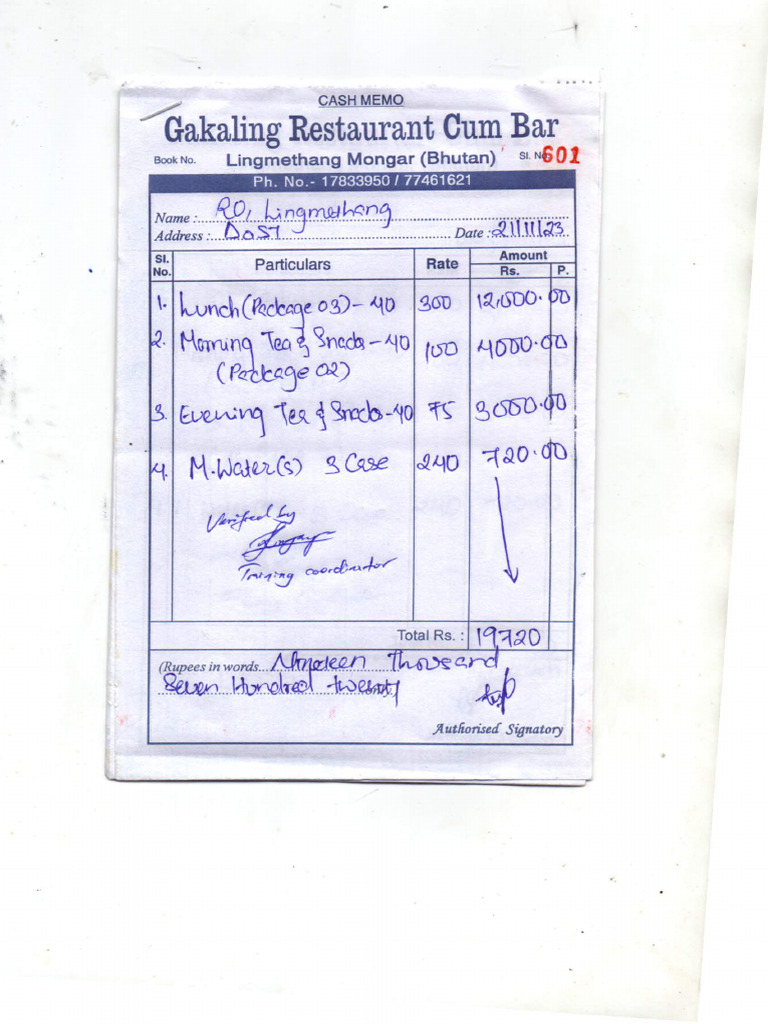 CASH MEMO
Gakaling Restaurant Cum Bar
Book No. Lingmethang Mongar (Bhutan) Sl. No 601
Ph. No.- 17833950 / 77461621
Name : RO, Lingmethang
Address : DoST Date : 21/11/23
Sl. No. Particulars Rate Amount Rs. P.
1. Lunch (Package 03) - 40 300 12,000.00
2. Morning Tea & Snacks - 40 100 4000.00
(Package 02)
3. Evening Tea & Snacks - 40 75 3000.00
4. M.Water(s) 3 Case 240 720.00
Verified by
Training coordinator
Total Rs. : 19720
(Rupees in words... Nineteen Thousand
Seven Hundred twenty
Authorised Signatory